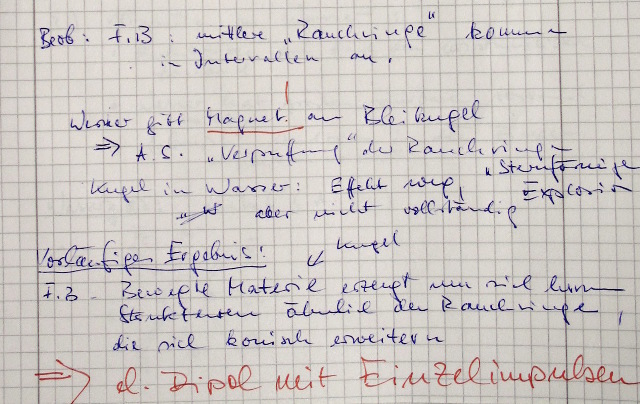 Beob: F.B : mittlere „Rauchringe" kommen
in Intervallen an.
Werner gibt Magnet an Bleikugel
⇒ A.S. „Verpuffung" der Rauchringe
Kugel in Wasser: Effekt weg, „Sternförmige Explosion
aber nicht vollständig
Vorläufiges Ergebnis:
Kugel
F.B Bewegte Materie erzeugt um sich herum
Strukturen ähnlich der Rauchringe,
die sich konisch erweitern
⇒ d. Dipol mit Einzelimpulsen